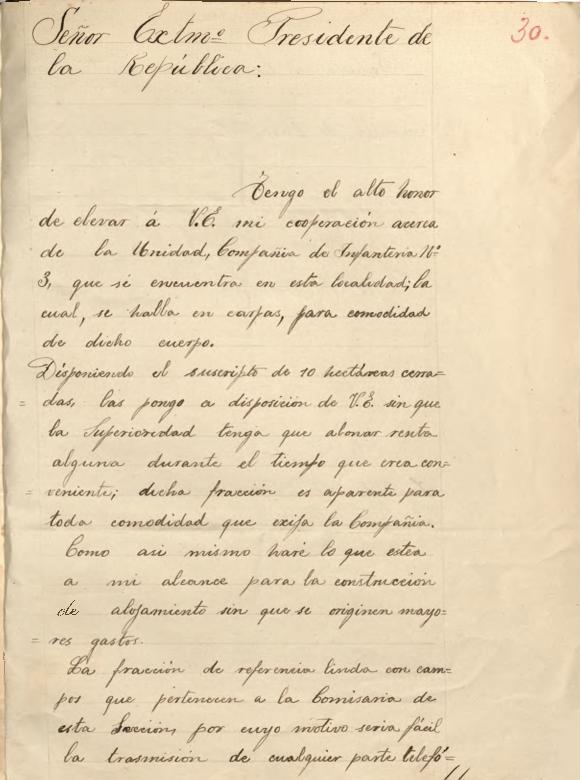 Señor Extmº Presidente de
30.
la República:
Tengo el alto honor
de elevar á V.E. mi cooperación acerca
de la Unidad, Compañia de Infanteria Nº
3, que sé encuentra en esta localidad; la
cual, se halla en carpas, para comodidad
de dicho cuerpo.
Disponiendo el suscripto de 10 hectáreas cerra=
= das, las pongo a disposición de V.E. sin que
la Superioridad tenga que abonar renta
alguna durante el tiempo que crea con=
= veniente; dicha fracción es aparente para
toda comodidad que exija la Compañia.
Como asi mismo haré lo que estea
a mi alcance para la construcción
de alojamiento sin que se originen mayo=
= res gastos.
La fracción de referencia linda con cam=
pos que pertenecen a la Comisaria de
esta Sección, por cuyo motivo seria fácil
la trasmisión de cualquier parte telefó=